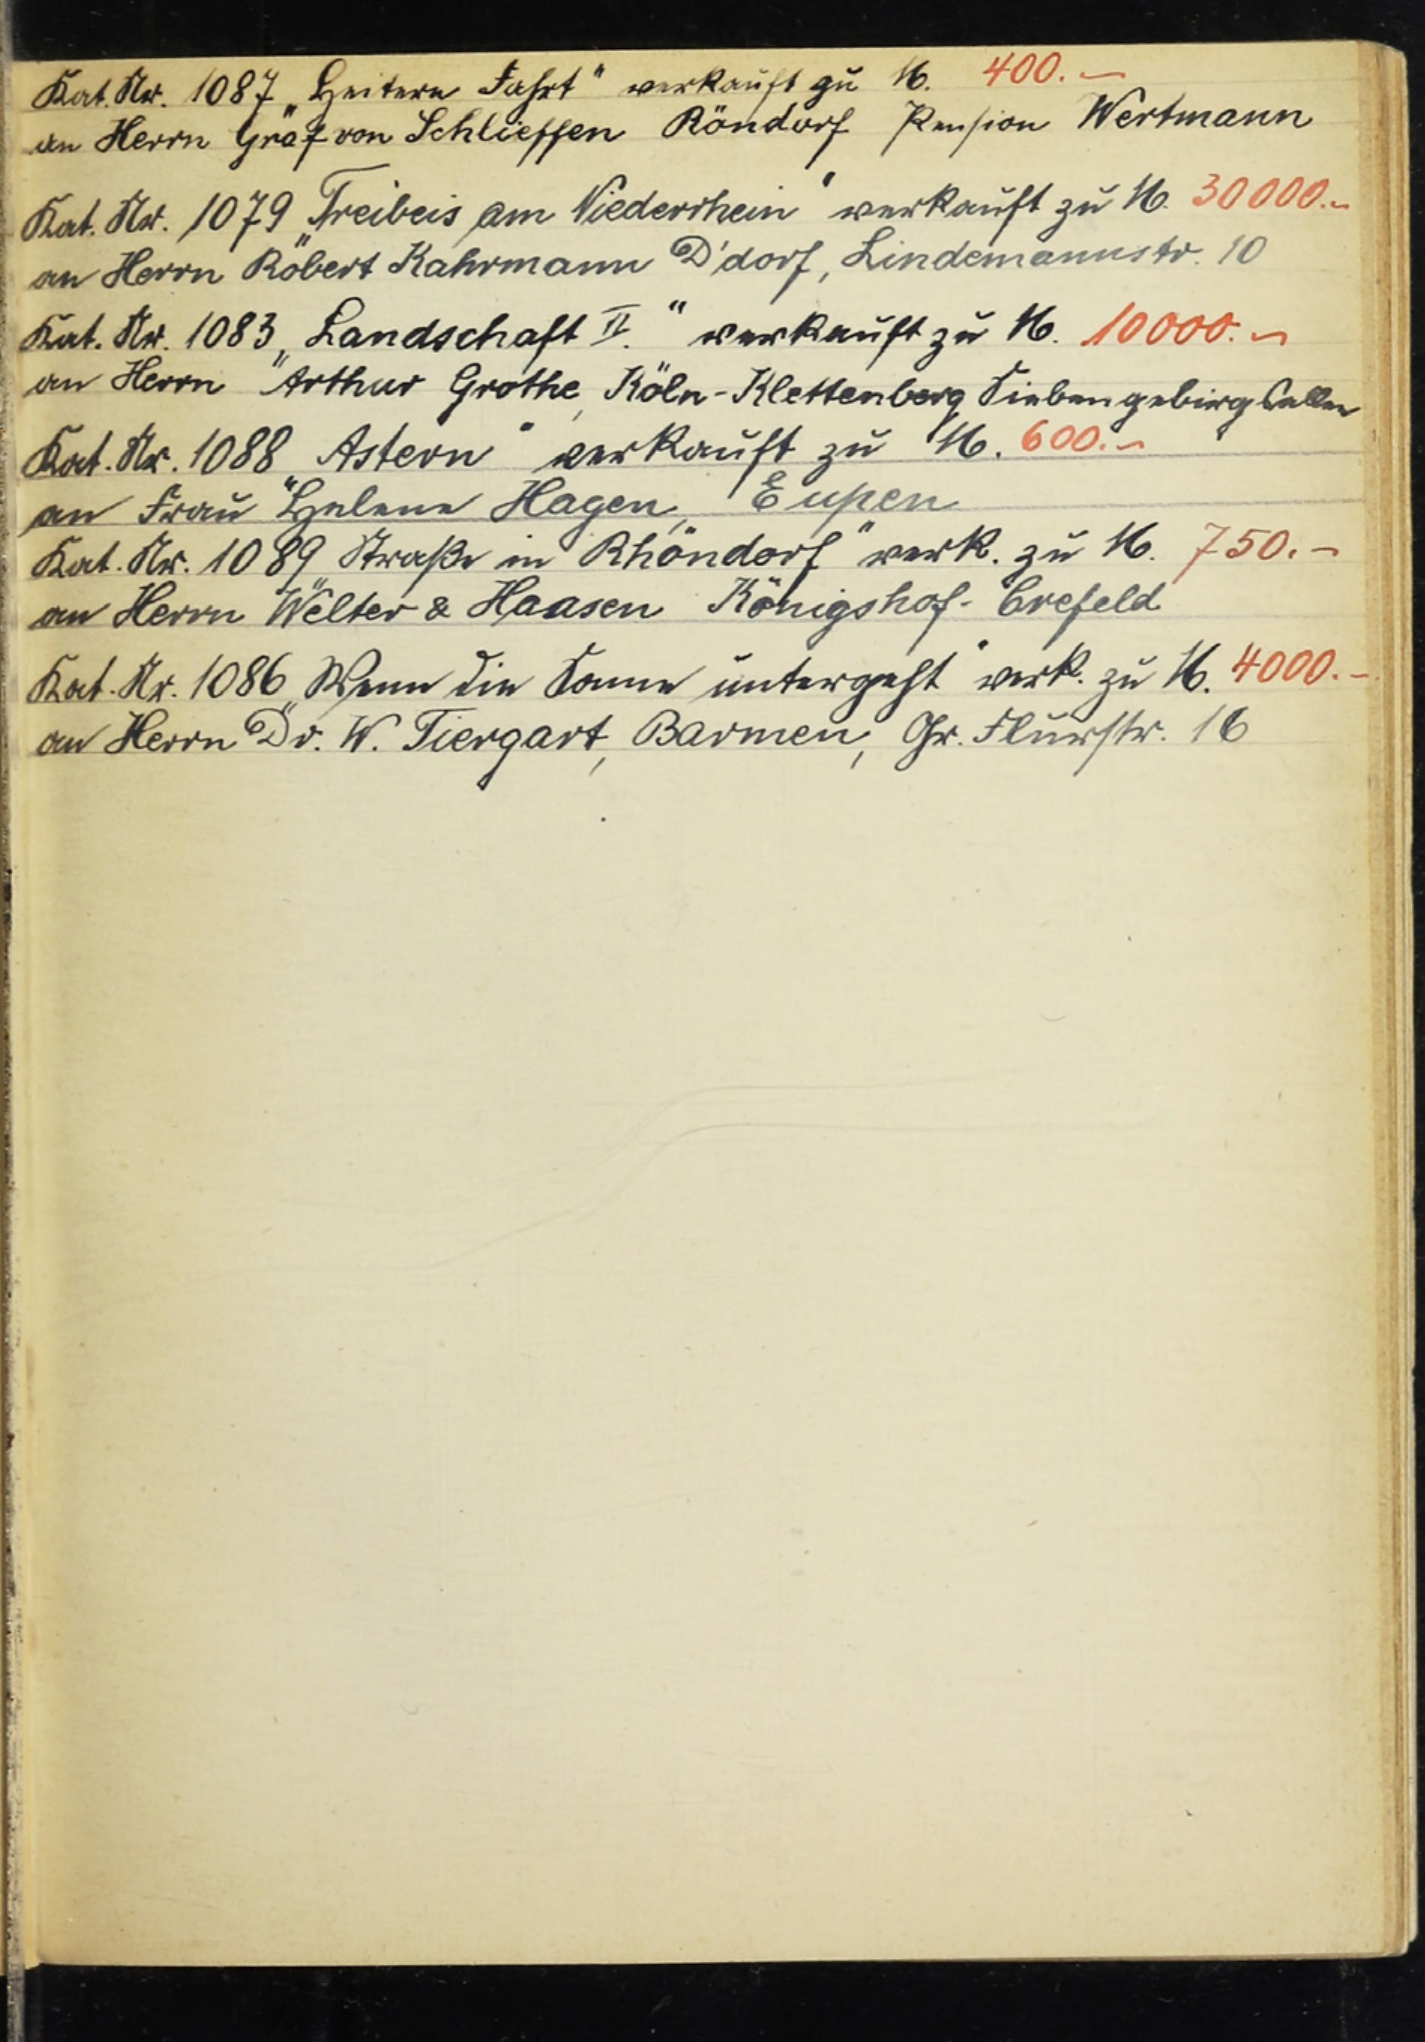 Kat. Nr. 1087 „Heitere Fahrt" verkauft zu M. 400.—
an Herrn Graf von Schlieffen Röndorf Pension Wertmann
Kat. Nr. 1079 „Treibeis am Niederrhein" verkauft zu M. 30000.–
an Herrn Robert Kahrmann D'dorf, Lindemannstr. 10
Kat. Nr. 1083 „Landschaft II." verkauft zu M. 10000.–
an Herrn Arthur Grothe, Köln-Klettenberg Siebengebirgsallee
Kat. Nr. 1088 „Astern" verkauft zu M. 600.–
an Frau Helene Hagen, Eupen
Kat. Nr. 1089 „Straße in Rhöndorf" verk. zu M. 750.–
an Herrn Welter & Haasen Königshof-Crefeld
Kat. Nr. 1086 „Wenn die Sonne untergeht" verk. zu M. 4000.–
an Herrn Dr. W. Tiergart, Barmen, Gr. Flurstr. 16